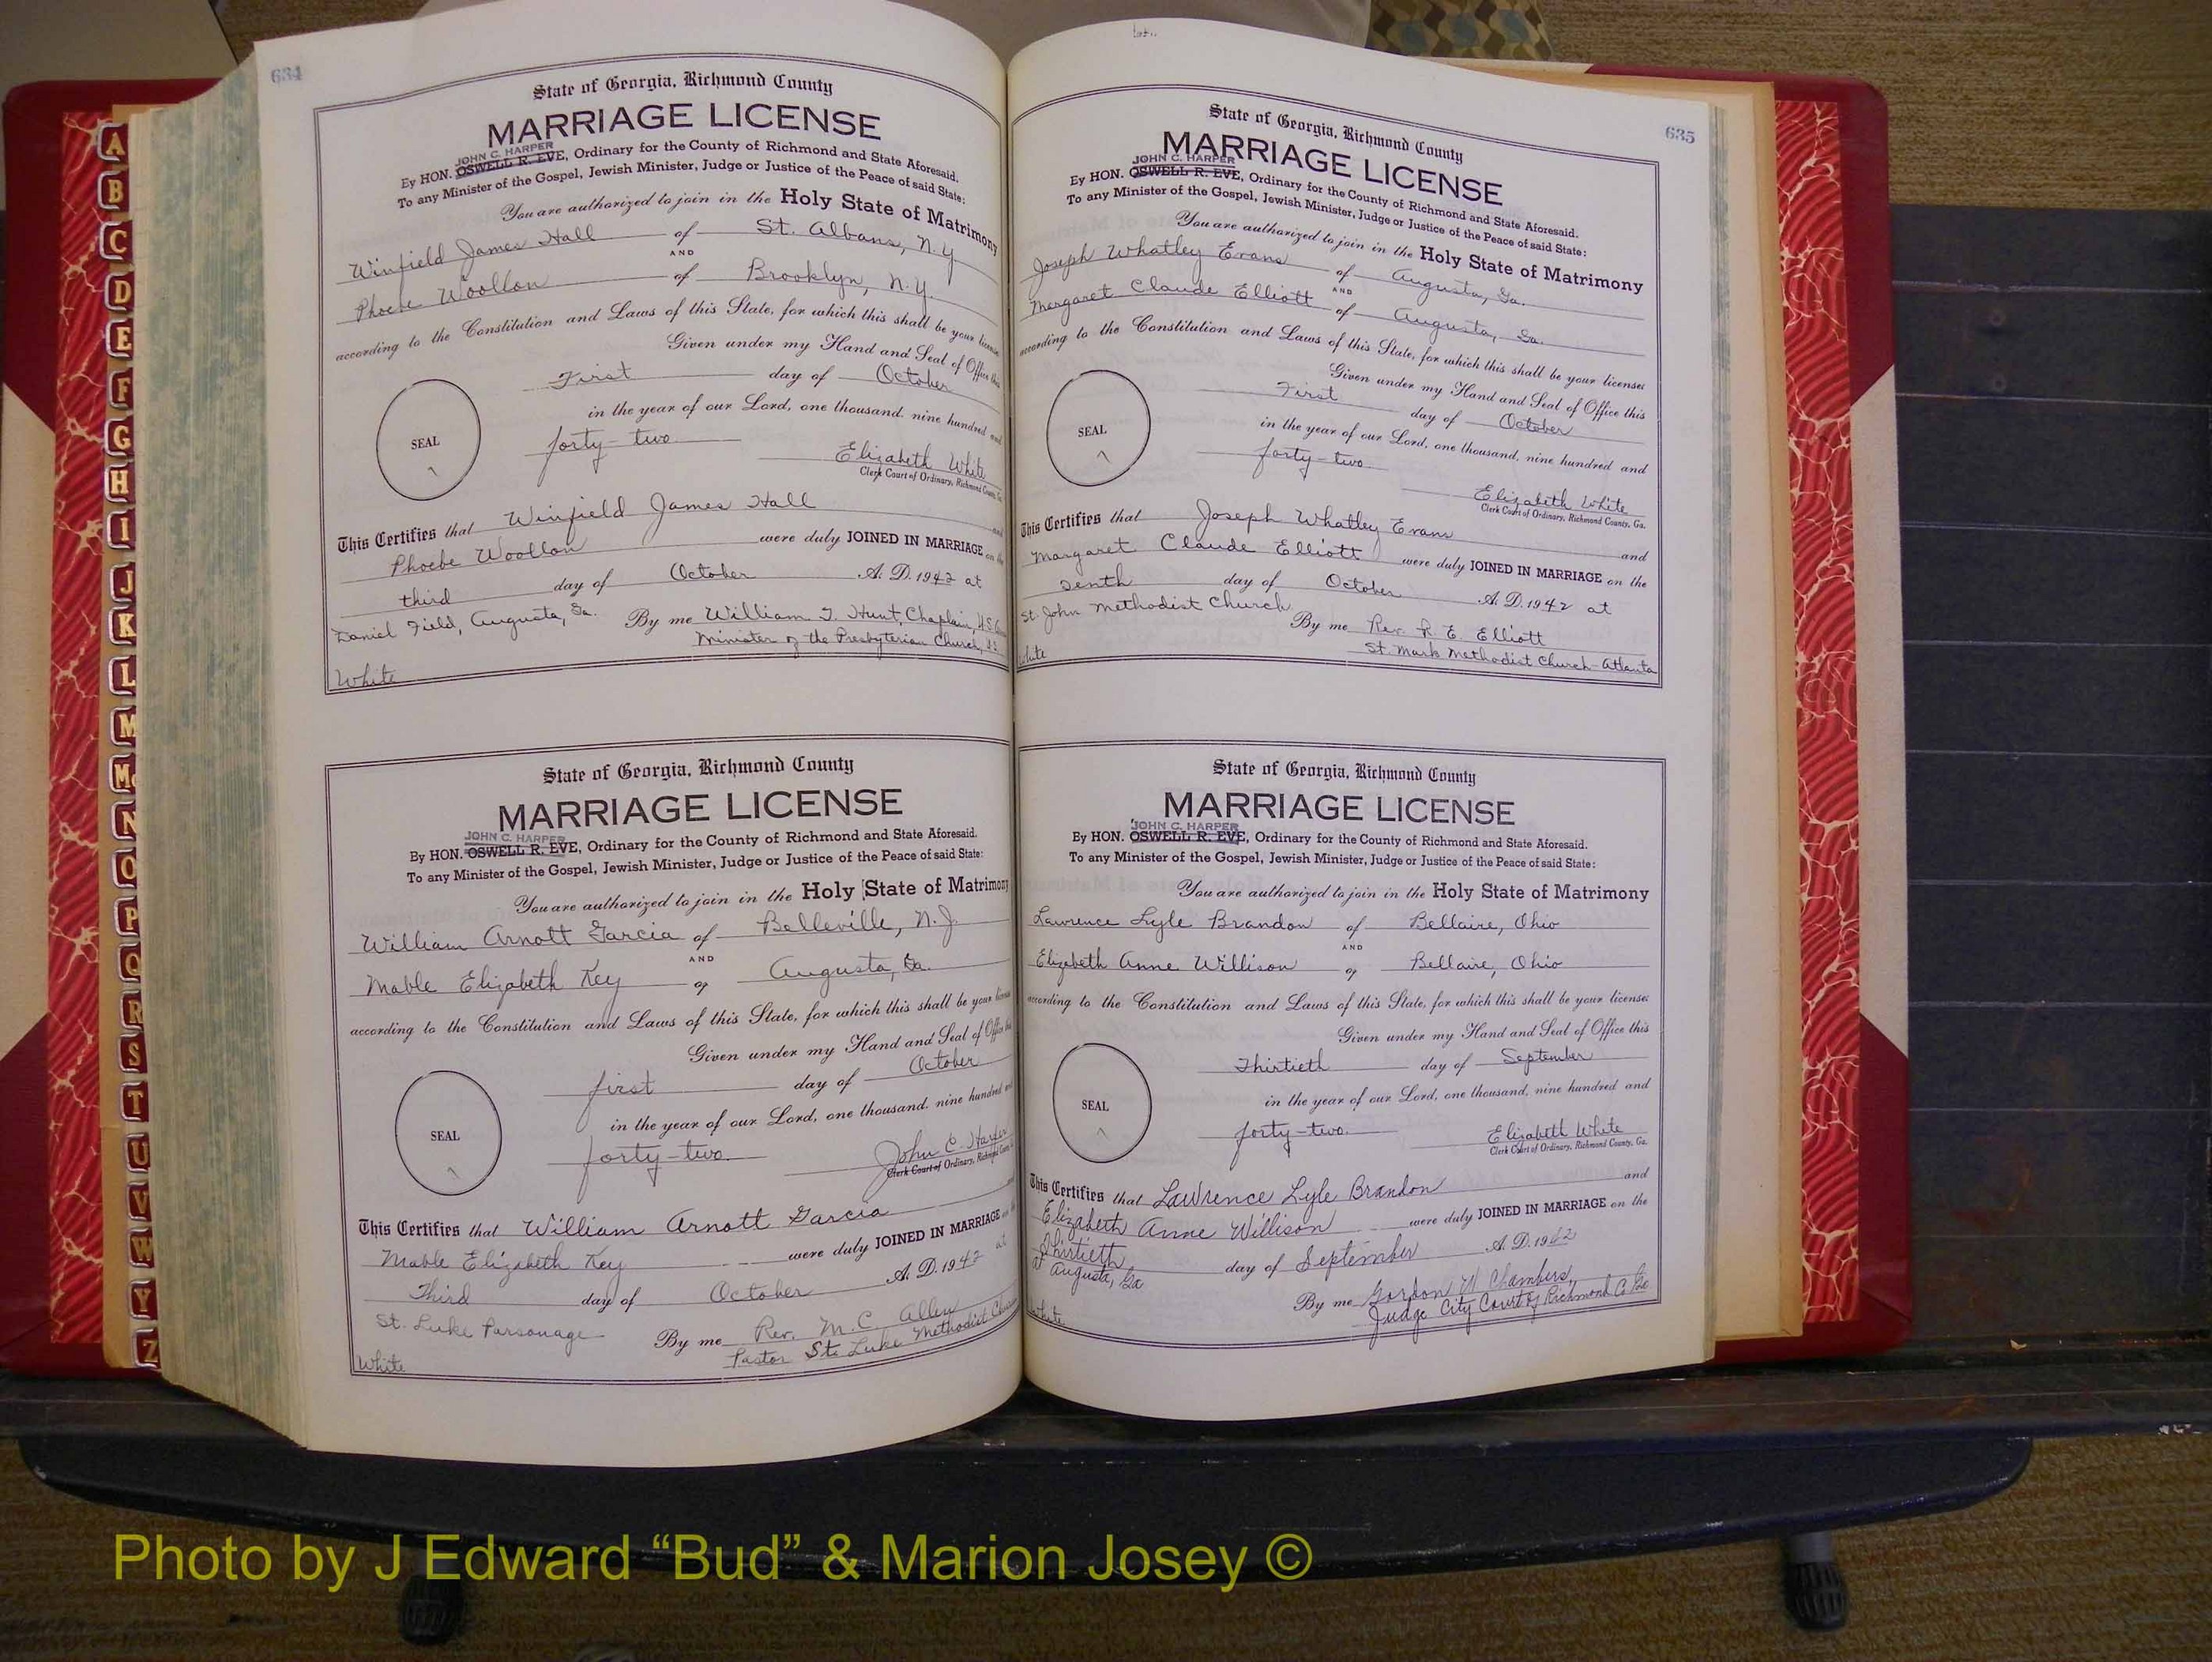 634
State of Georgia, Richmond County
MARRIAGE LICENSE
JOHN C. HARPER
By HON. OSWELL R. EVE, Ordinary for the County of Richmond and State Aforesaid.
To any Minister of the Gospel, Jewish Minister, Judge or Justice of the Peace of said State:
You are authorized to join in the Holy State of Matrimony
Winfield James Hall of St. Albans, N.Y.
AND
Phoebe Woollon of Brooklyn, N.Y.
according to the Constitution and Laws of this State, for which this shall be your license
Given under my Hand and Seal of Office this
First day of October
in the year of our Lord, one thousand, nine hundred and
SEAL
forty-two
Elizabeth White
Clerk Court of Ordinary, Richmond County, Ga.
This Certifies that Winfield James Hall and
Phoebe Woollon were duly JOINED IN MARRIAGE on the
third day of October A. D. 1942 at
Daniel Field, Augusta, Ga. By me William T. Hunt, Chaplain,
Minister of the Presbyterian Church, U.S.
White
State of Georgia, Richmond County
MARRIAGE LICENSE
JOHN C. HARPER
By HON. OSWELL R. EVE, Ordinary for the County of Richmond and State Aforesaid.
To any Minister of the Gospel, Jewish Minister, Judge or Justice of the Peace of said State:
You are authorized to join in the Holy State of Matrimony
William Arnott Garcia of Belleville, N.J.
AND
Mable Elizabeth Key of Augusta, Ga.
according to the Constitution and Laws of this State, for which this shall be your license
Given under my Hand and Seal of Office this
first day of October
in the year of our Lord, one thousand, nine hundred and
SEAL
forty-two
John C. Harper
Clerk Court of Ordinary, Richmond County
This Certifies that William Arnott Garcia
Mable Elizabeth Key were duly JOINED IN MARRIAGE on the
Third day of October A. D. 1942 at
St. Luke Parsonage By me Rev. M. C. Allen
Pastor St. Luke Methodist Church
White
635
State of Georgia, Richmond County
MARRIAGE LICENSE
JOHN C. HARPER
By HON. OSWELL R. EVE, Ordinary for the County of Richmond and State Aforesaid.
To any Minister of the Gospel, Jewish Minister, Judge or Justice of the Peace of said State:
You are authorized to join in the Holy State of Matrimony
Joseph Whatley Evans of Augusta, Ga.
AND
Margaret Claude Elliott of Augusta, Ga.
according to the Constitution and Laws of this State, for which this shall be your license:
Given under my Hand and Seal of Office this
First day of October
in the year of our Lord, one thousand, nine hundred and
SEAL
forty-two
Elizabeth White
Clerk Court of Ordinary, Richmond County, Ga.
This Certifies that Joseph Whatley Evans and
Margaret Claude Elliott were duly JOINED IN MARRIAGE on the
Tenth day of October A. D. 1942 at
St. John Methodist Church By me Rev. R. E. Elliott
St. Mark Methodist Church-Atlanta
White
State of Georgia, Richmond County
MARRIAGE LICENSE
JOHN C. HARPER
By HON. OSWELL R. EVE, Ordinary for the County of Richmond and State Aforesaid.
To any Minister of the Gospel, Jewish Minister, Judge or Justice of the Peace of said State:
You are authorized to join in the Holy State of Matrimony
Lawrence Lyle Brandon of Bellaire, Ohio
AND
Elizabeth Anne Willison of Bellaire, Ohio
according to the Constitution and Laws of this State, for which this shall be your license:
Given under my Hand and Seal of Office this
Thirtieth day of September
in the year of our Lord, one thousand, nine hundred and
SEAL
forty-two.
Elizabeth White
Clerk Court of Ordinary, Richmond County, Ga.
This Certifies that Lawrence Lyle Brandon and
Elizabeth Anne Willison were duly JOINED IN MARRIAGE on the
Thirtieth day of September A. D. 1942
at Augusta, Ga
By me Gordon W Chambers,
Judge City Court of Richmond Co Ga
White
A
B
C
D
E
F
G
H
I
J
K
L
M
Mc
N
O
P
Q
R
S
T
U
V
W
Y
Z
Photo by J Edward “Bud” & Marion Josey ©